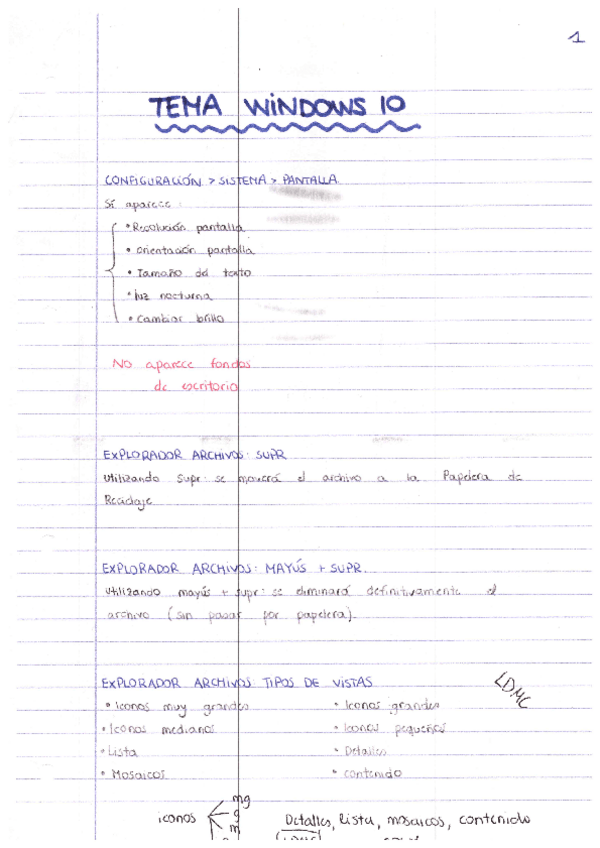 1
TEMA WINDOWS 10
CONFIGURACIÓN > SISTEMA > PANTALLA
Sí aparece:
• Resolución pantalla
• Orientación pantalla
• Tamaño del texto
• Luz nocturna
• Cambiar brillo
No aparece fondos
de escritorio
EXPLORADOR ARCHIVOS: SUPR
Utilizando Supr: se moverá el archivo a la Papelera de
Reciclaje
EXPLORADOR ARCHIVOS: MAYÚS + SUPR.
Utilizando mayús + supr: se eliminará definitivamente el
archivo (sin pasar por papelera).
EXPLORADOR ARCHIVOS: TIPOS DE VISTAS
LDMC
• Iconos muy grandes • Iconos grandes
• Iconos medianos • Iconos pequeños
• Lista • Detalles
• Mosaicos • Contenido
mg
iconos g Detalles, lista, mosaicos, contenido
m